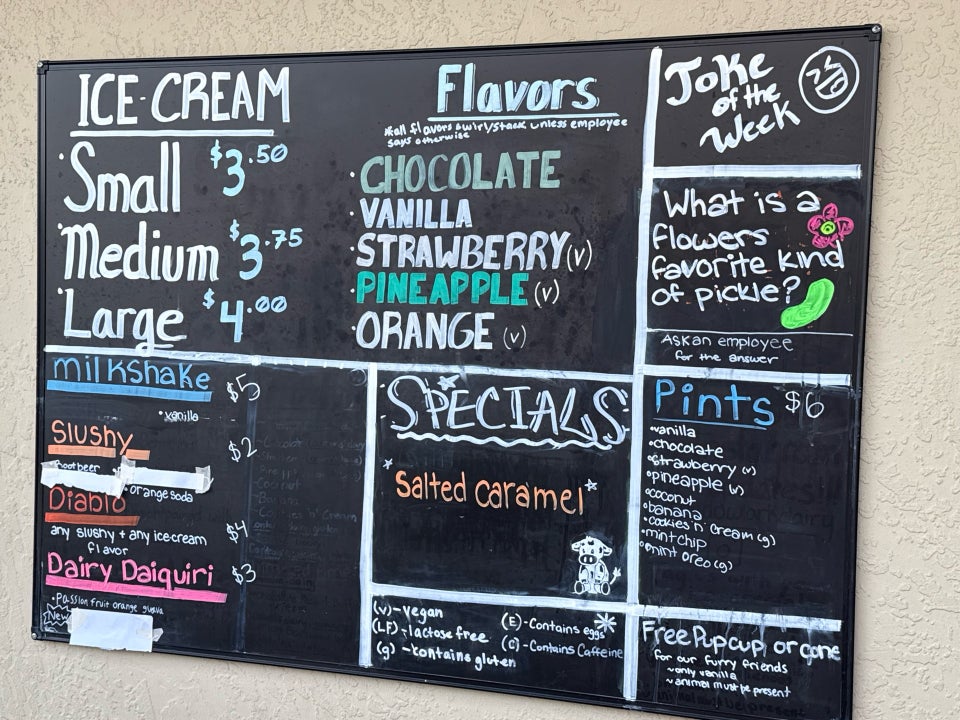 ICE-CREAM
· Small $3.50
· Medium $3.75
· Large $4.00
Flavors
*all flavors swirl/stack unless employee
says otherwise
· CHOCOLATE
· VANILLA
· STRAWBERRY (v)
· PINEAPPLE (v)
· ORANGE (v)
Joke
of the
Week
What is a
flowers
favorite kind
of pickle?
Ask an employee
for the answer
milkshake $5
• vanilla
Slushy $2
rootbeer
• orange soda
Diablo $4
any slushy + any ice-cream
flavor
Dairy Daiquiri $3
• Passion fruit orange guava
New
SPECIALS
* Salted Caramel *
Pints $6
• vanilla
• chocolate
• strawberry (v)
• pineapple (v)
• coconut
• banana
• cookies n' cream (g)
• mint chip
• mint oreo (g)
(v) - vegan
(LF) - lactose free
(g) - contains gluten
(E) - Contains eggs
(C) - Contains Caffeine
Free Pupcup or cone
for our furry friends
~ only vanilla
~ animal must be present